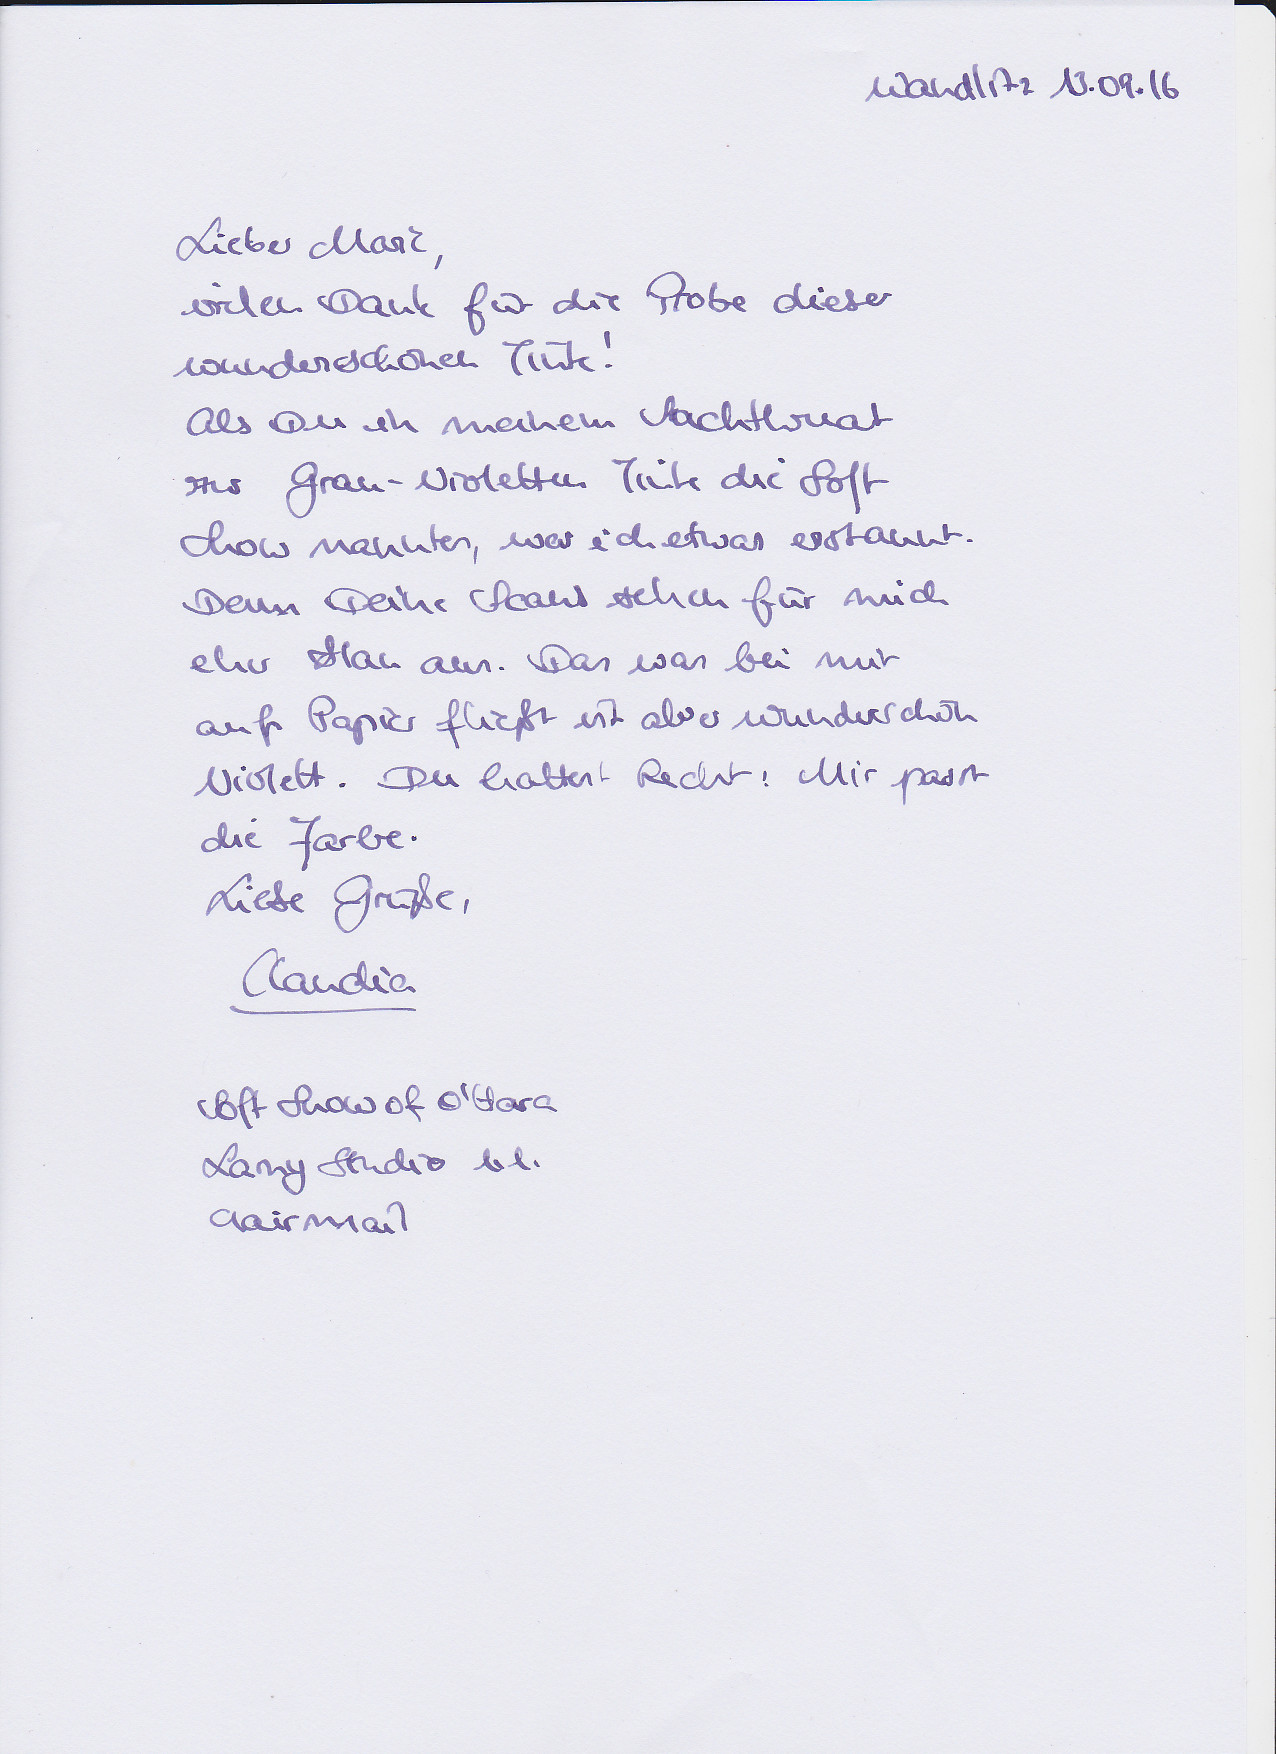 Wandlitz 13.09.16
Lieber Mari,
vielen Dank für die Probe dieser
wunderschönen Tinte!
Als Du in meinem
zur Grau-Violetten Tinte die Soft
Show nanntes, war ich etwas erstaunt.
Denn Deine Scans sehen für mich
eher blau aus. Das was bei mir
aufs Papier fließt ist aber wunderschön
Violett. Du hattest Recht! Mir passt
die Farbe.
Liebe Grüße,
Claudia
Soft Show of O'Hara
Lamy Studio
Clairmail